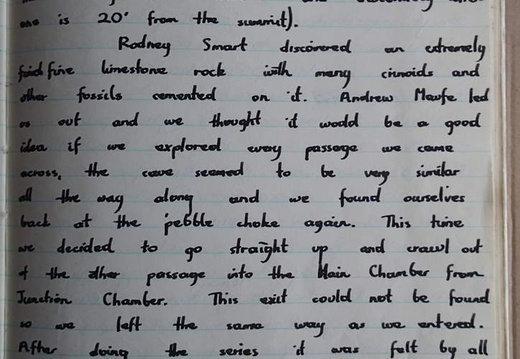 one is 20' from the summit).
Rodney Smart discovered an extremely
fine limestone rock with many crinoids and
other fossils cemented on it. Andrew Maufe led
us out and we thought it would be a good
idea if we explored every passage we came
across, the cave seemed to be very similar
all the way along and we found ourselves
back at the pebble choke again. This time
we decided to go straight up and crawl out
of the other passage into the Main Chamber from
Junction Chamber. This exit could not be found
so we left the same way as we entered.
After doing the series it was felt by all